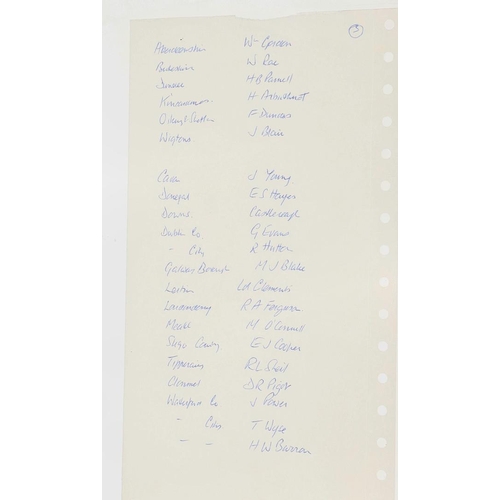 3
Aberdeenshire W Gordon
Berwickshire W Rae
Dundee H B Parnell
H Arbuthnot
Orkney & Shetland F Dundas
Wigtown J Blair
Cavan J Young
Donegal E S Hayes
Down Castlereagh
Dublin Co G Evans
- City R Hutton
Galway Borough M J Blake
Leitrim Ld Clements
Londonderry R A Ferguson
Meath M O'Connell
Sligo County E J Cooper
Tipperary R L Sheil
Clonmel D R Pigot
Waterford Co J Power
- City T Wyse
- - H W Barron